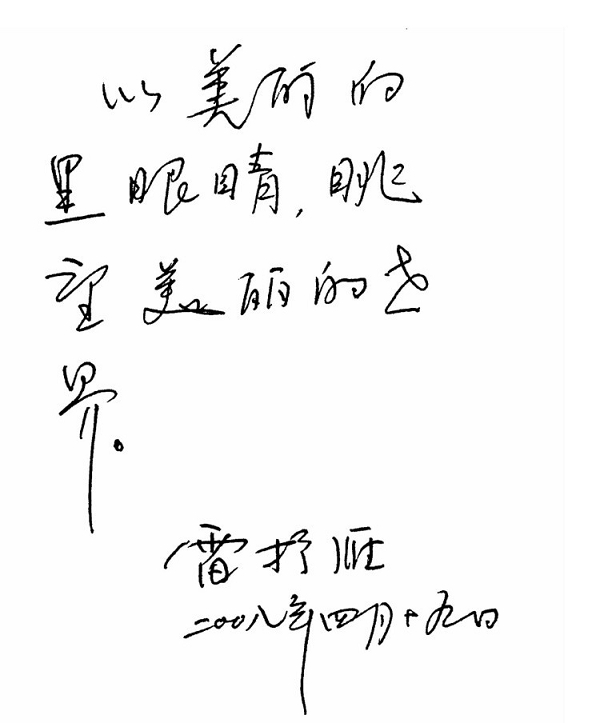 以美丽的
黑眼睛,眺
望美丽的世
界。
雷抒雁
二〇〇八年四月十九日